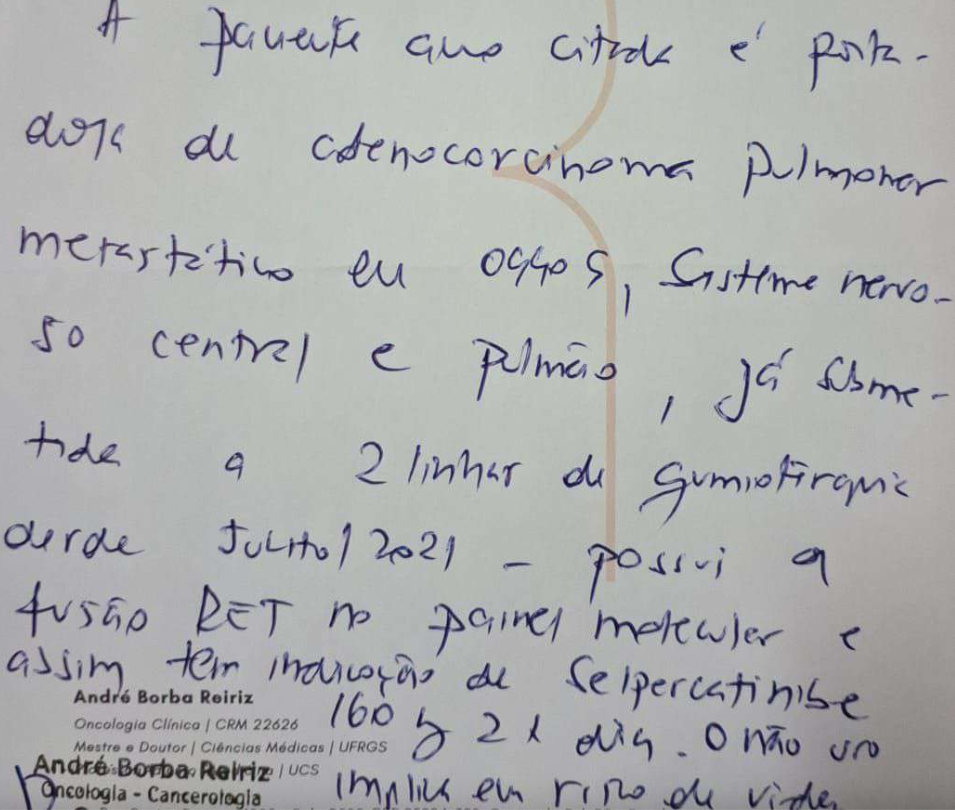 A paciente aqui citada é porta-
dora de adenocarcinoma pulmonar
metastático em ossos, sistema nervo-
so central e pulmão, já subme-
tida a 2 linhas de quimioterapia
desde Julho/2021 - possui a
fusão RET no painel molecular e
assim tem indicação de Selpercatinibe
André Borba Reiriz
160 2 x dia. O não uso
Oncologia Clínica | CRM 22626
Mestre e Doutor | Ciências Médicas | UFRGS
André Borba Reiriz | UCS
implica em risco de vida
Oncologia - Cancerologia